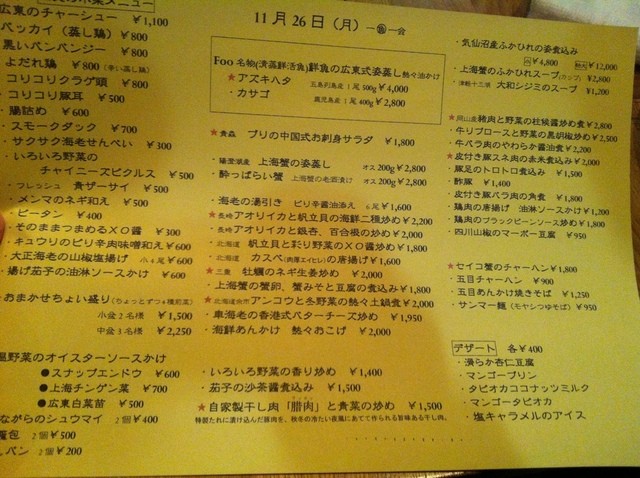 メニュー
広東のチャーシュー ¥1,100
バッカイ(蒸し鶏) ¥800
黒いバンバンジー ¥800
よだれ鶏 ¥800(辛い蒸し鶏)
コリコリクラゲ頭 ¥800
コリコリ豚耳 ¥500
腸詰め ¥600
スモークダック ¥700
サクサク海老せんべい ¥300
・いろいろ野菜の
チャイニーズピクルス ¥500
・フレッシュ 青ザーサイ ¥500
・メンマのネギ和え ¥500
・ピータン ¥400
・そのままつまめるXO醤 ¥300
・キュウリのピリ辛肉味噌和え¥600
・大正海老の山椒塩揚げ 小4尾¥600
・揚げ茄子の油淋ソースかけ ¥600
おまかせちょい盛り(ちょっとずつ4種前菜)
小盆2名様 ¥1,500
中盆3名様 ¥2,250
温野菜のオイスターソースかけ
●スナップエンドウ ¥600
●上海チンゲン菜 ¥700
●広東白菜苗 ¥500
ながらのシュウマイ 2個¥400
2個¥500
パン 2個¥200
11月26日(月)
Foo名物(清蒸鮮活魚)鮮魚の広東式姿蒸し熱々油かけ
★アズキハタ 五島列島産 1尾500g¥4,000
・カサゴ 鹿児島産 1尾400g¥2,800
★青森 ブリの中国式お刺身サラダ ¥1,800
・陽澄湖産 上海蟹の姿蒸し オス200g¥2,800
・酔っぱらい蟹 上海蟹の老酒漬け オス200g¥2,800
・海老の湯引き ピリ辛醤油添え 6尾¥1,600
★長崎 アオリイカと帆立貝の海鮮二種炒め¥2,200
・長崎 アオリイカと銀杏、百合根の炒め ¥2,000
・北海道 帆立貝と彩り野菜のXO醤炒め ¥1,800
・北海道 カスベ(肉厚エイヒレ)の唐揚げ¥1,600
★三重 牡蠣のネギ生姜炒め ¥2,000
・上海蟹の蟹卵、蟹みそと豆腐の煮込み¥1,800
★北海道余市 アンコウと冬野菜の熱々土鍋煮¥2,000
・車海老の香港式バターチーズ炒め ¥1,950
・海鮮あんかけ 熱々おこげ ¥2,000
・いろいろ野菜の香り炒め ¥1,400
・茄子の沙茶醤煮込み ¥1,500
★自家製干し肉「腊肉」と青菜の炒め ¥1,500
特製たれに漬け込んだ豚肉を、秋冬の冷たい夜風にあてて作られる旨味ある干し肉。
・気仙沼産ふかひれの姿煮込み
小¥4,800 ¥12,000
・上海蟹のふかひれスープ(カップ) ¥2,800
・津軽十三湖 大和シジミのスープ ¥1,200
★岡山産 猪肉と野菜の柱候醤炒め煮¥2,800
・牛リブロースと野菜の黒胡椒炒め¥2,500
・牛バラ肉のやわらか醤油煮¥2,200
★皮付き豚スネ肉の赤米煮込み¥2,000
・豚足のトロトロ煮込み ¥1,500
・酢豚 ¥1,400
・皮付き豚バラ肉の角煮 ¥1,800
・鶏肉の唐揚げ 油淋ソースかけ¥1,200
・鶏肉のブラックビーンソース炒め¥1,800
・四川山椒のマーボー豆腐 ¥950
★セイコ蟹のチャーハン¥1,800
・五目チャーハン ¥900
・五目あんかけ焼きそば ¥1,250
・サンマー麺(モヤシつゆそば) ¥950
デザート 各¥400
・滑らか杏仁豆腐
・マンゴープリン
・タピオカココナッツミルク
・マンゴータピオカ
・塩キャラメルのアイス